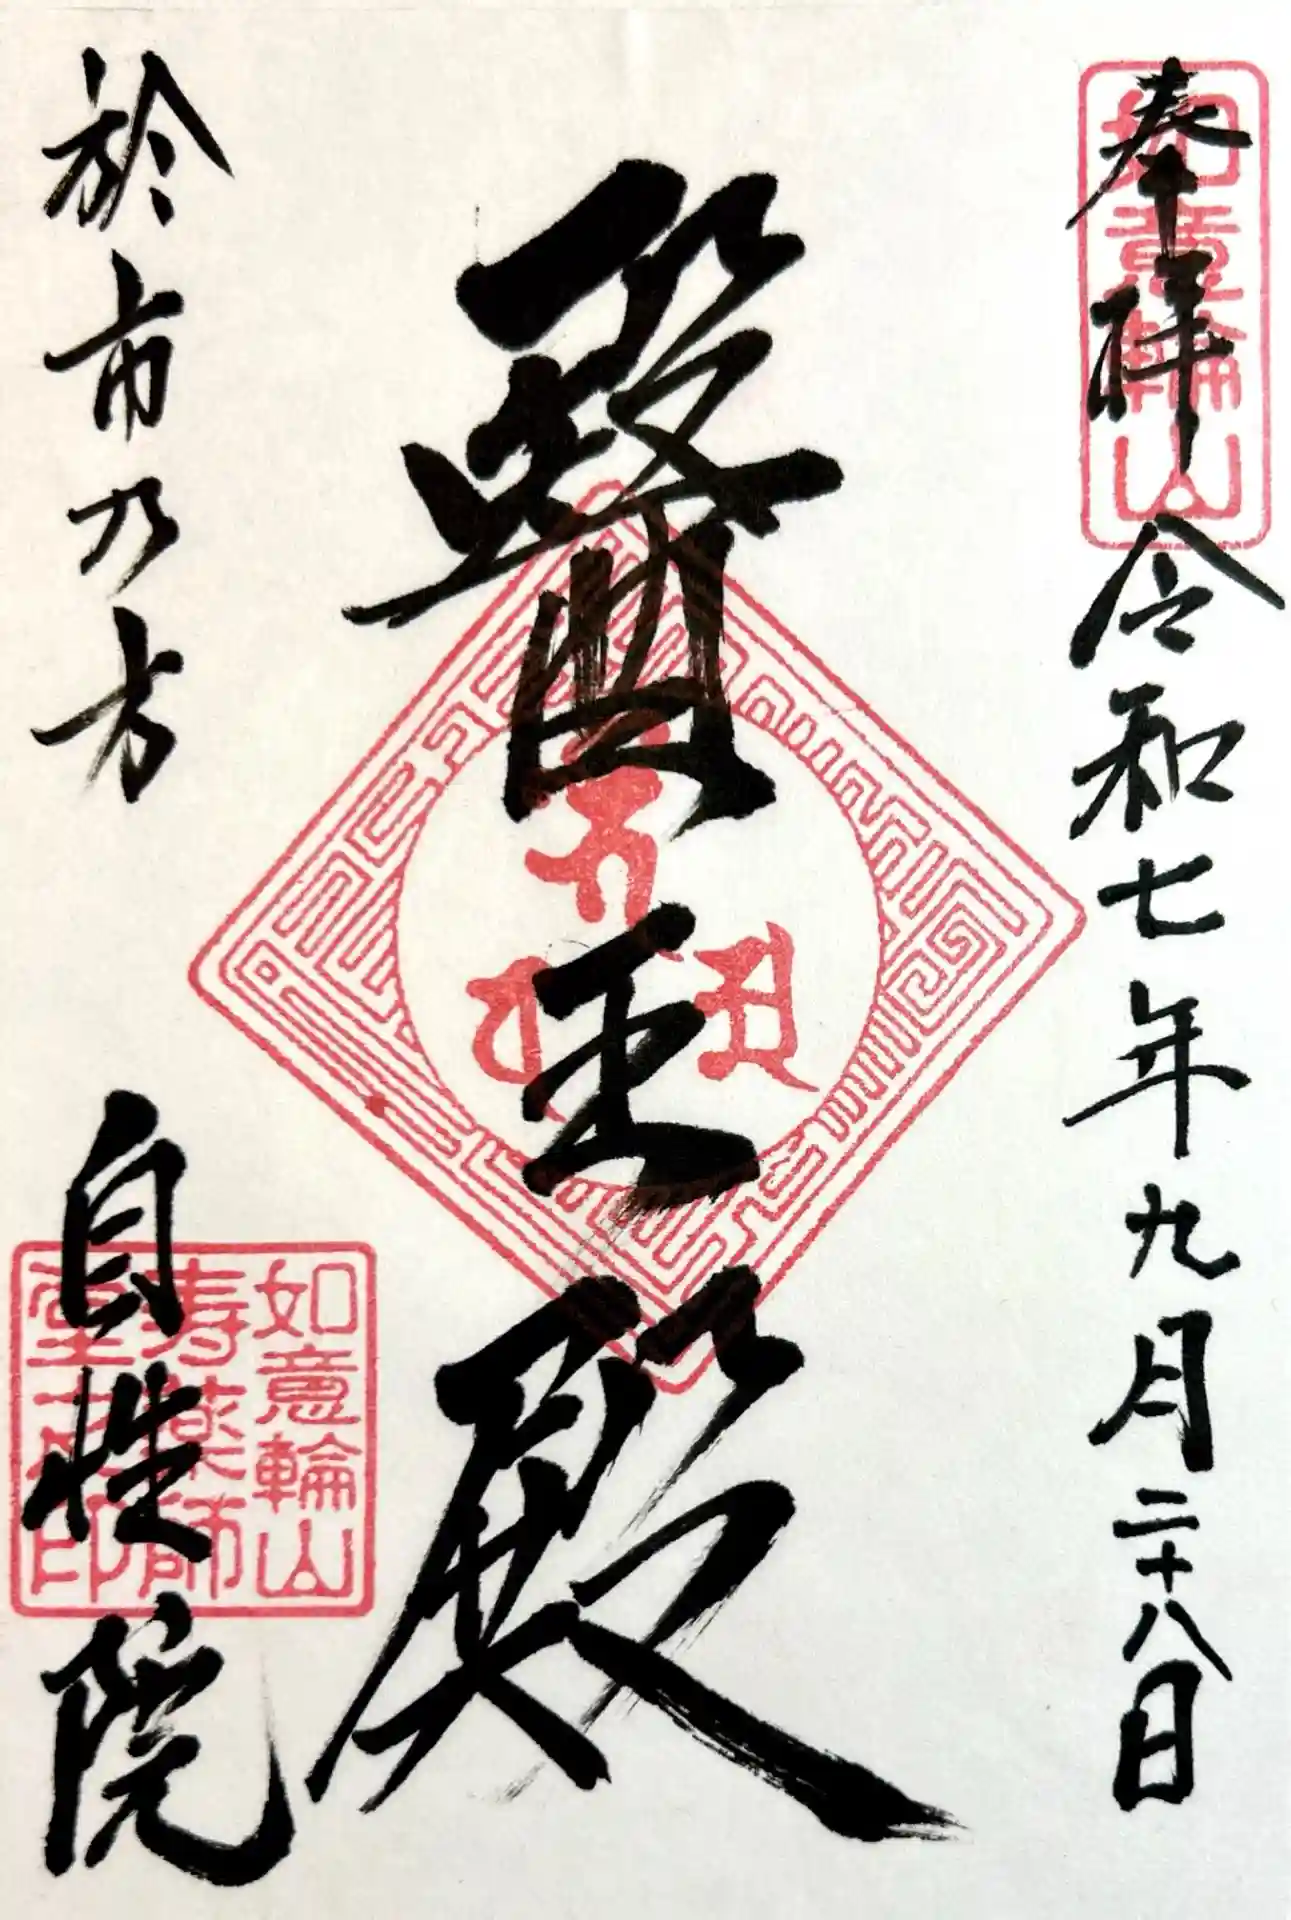 奉拝
令和七年九月二十八日
如意輪山
醫王殿
於市乃方
自性院
如意輪山
寿薬師
堂之印